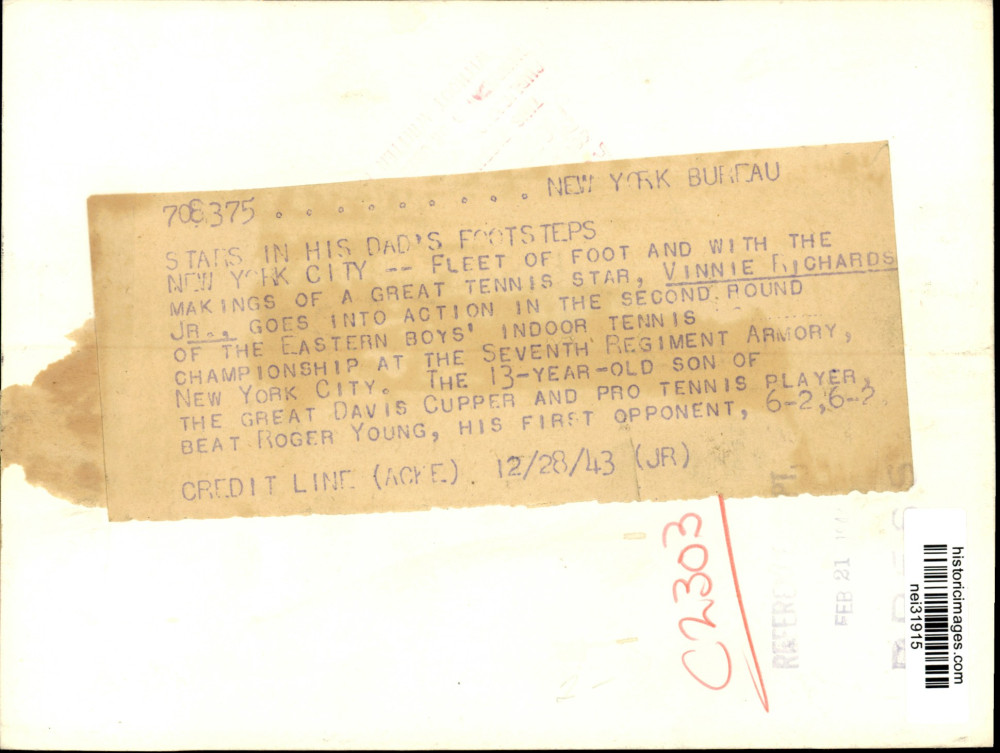 708375 . . . . . . . . . NEW YORK BUREAU
STARS IN HIS DAD'S FOOTSTEPS
NEW YORK CITY -- FLEET OF FOOT AND WITH THE
MAKINGS OF A GREAT TENNIS STAR, VINNIE RICHARDS
JR., GOES INTO ACTION IN THE SECOND ROUND
OF THE EASTERN BOYS' INDOOR TENNIS
CHAMPIONSHIP AT THE SEVENTH REGIMENT ARMORY,
NEW YORK CITY. THE 13-YEAR-OLD SON OF
THE GREAT DAVIS CUPPER AND PRO TENNIS PLAYER,
BEAT ROGER YOUNG, HIS FIRST OPPONENT, 6-2, 6-2.
CREDIT LINE (ACME) 12/28/43 (JR)
C2303
FEB 21
historicimages.com
nei31915